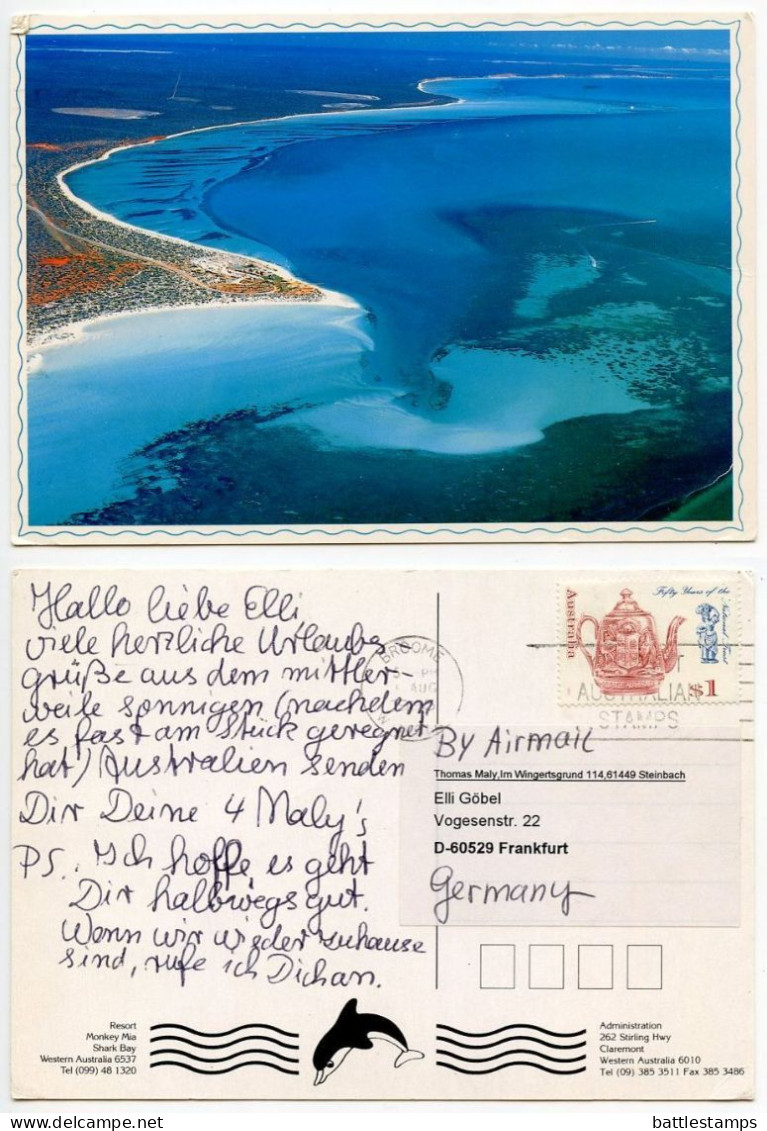 Hallo liebe Elli,
viele herzliche Urlaubs
grüße aus dem mittler-
weile sonnigen (nachdem
es fast am Stück geregnet
hat) Australien senden
Dir Deine 4 Maly's
PS. Ich hoffe, es geht
Dir halbwegs gut.
Wenn wir wieder zuhause
sind, rufe ich Dich an.
BROOME
AUG
Australia
Fifty Years of the
$1
AUSTRALIAN
STAMPS
By Airmail
Thomas Maly,Im Wingertsgrund 114,61449 Steinbach
Elli Göbel
Vogesenstr. 22
D-60529 Frankfurt
Germany
Resort
Monkey Mia
Shark Bay
Western Australia 6537
Tel (099) 48 1320
Administration
262 Stirling Hwy
Claremont
Western Australia 6010
Tel (09) 385 3511 Fax 385 3486
battlestamps